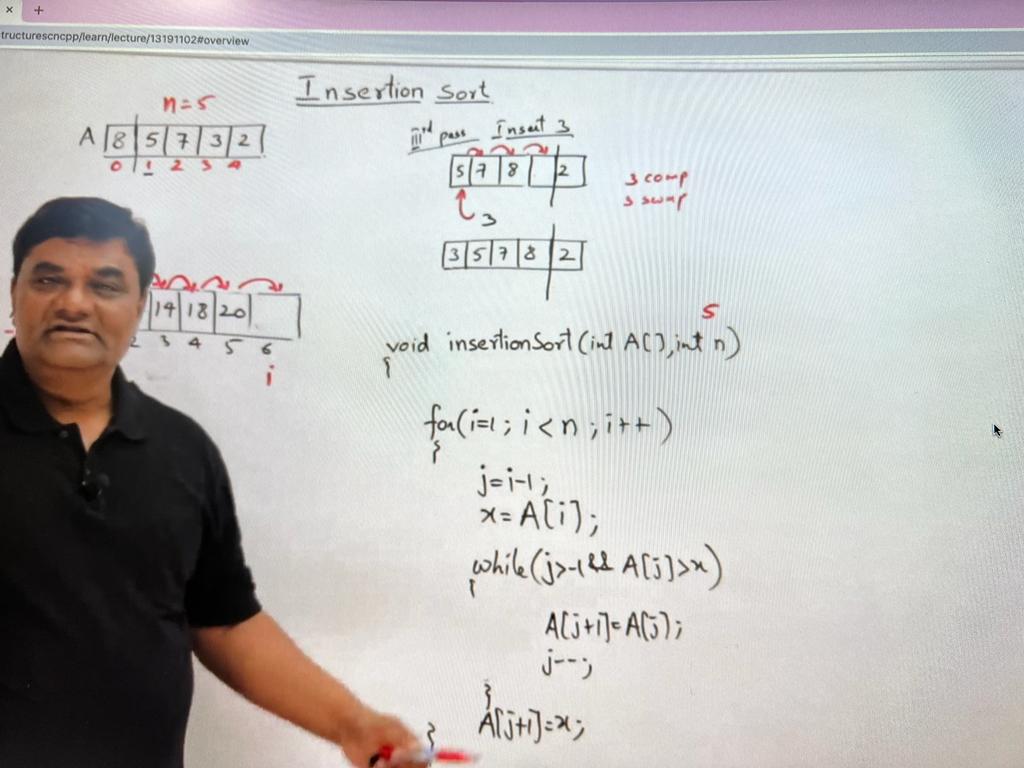 × +
tructurescncpp/learn/lecture/13191102#overview
Insertion Sort
n=5
A 8 5 7 3 2
0 1 2 3 4
IIIrd pass Insert 3
5 7 8 2
3
3 comp
3 swap
3 5 7 8 2
14 18 20
2 3 4 5 6
i
5
void insertionSort(int A[],int n)
{
for(i=1; i<n; i++)
{
j=i-1;
x=A[i];
while(j>-1 && A[j]>x)
{
A[j+1]=A[j];
j--;
}
A[j+1]=x;
}